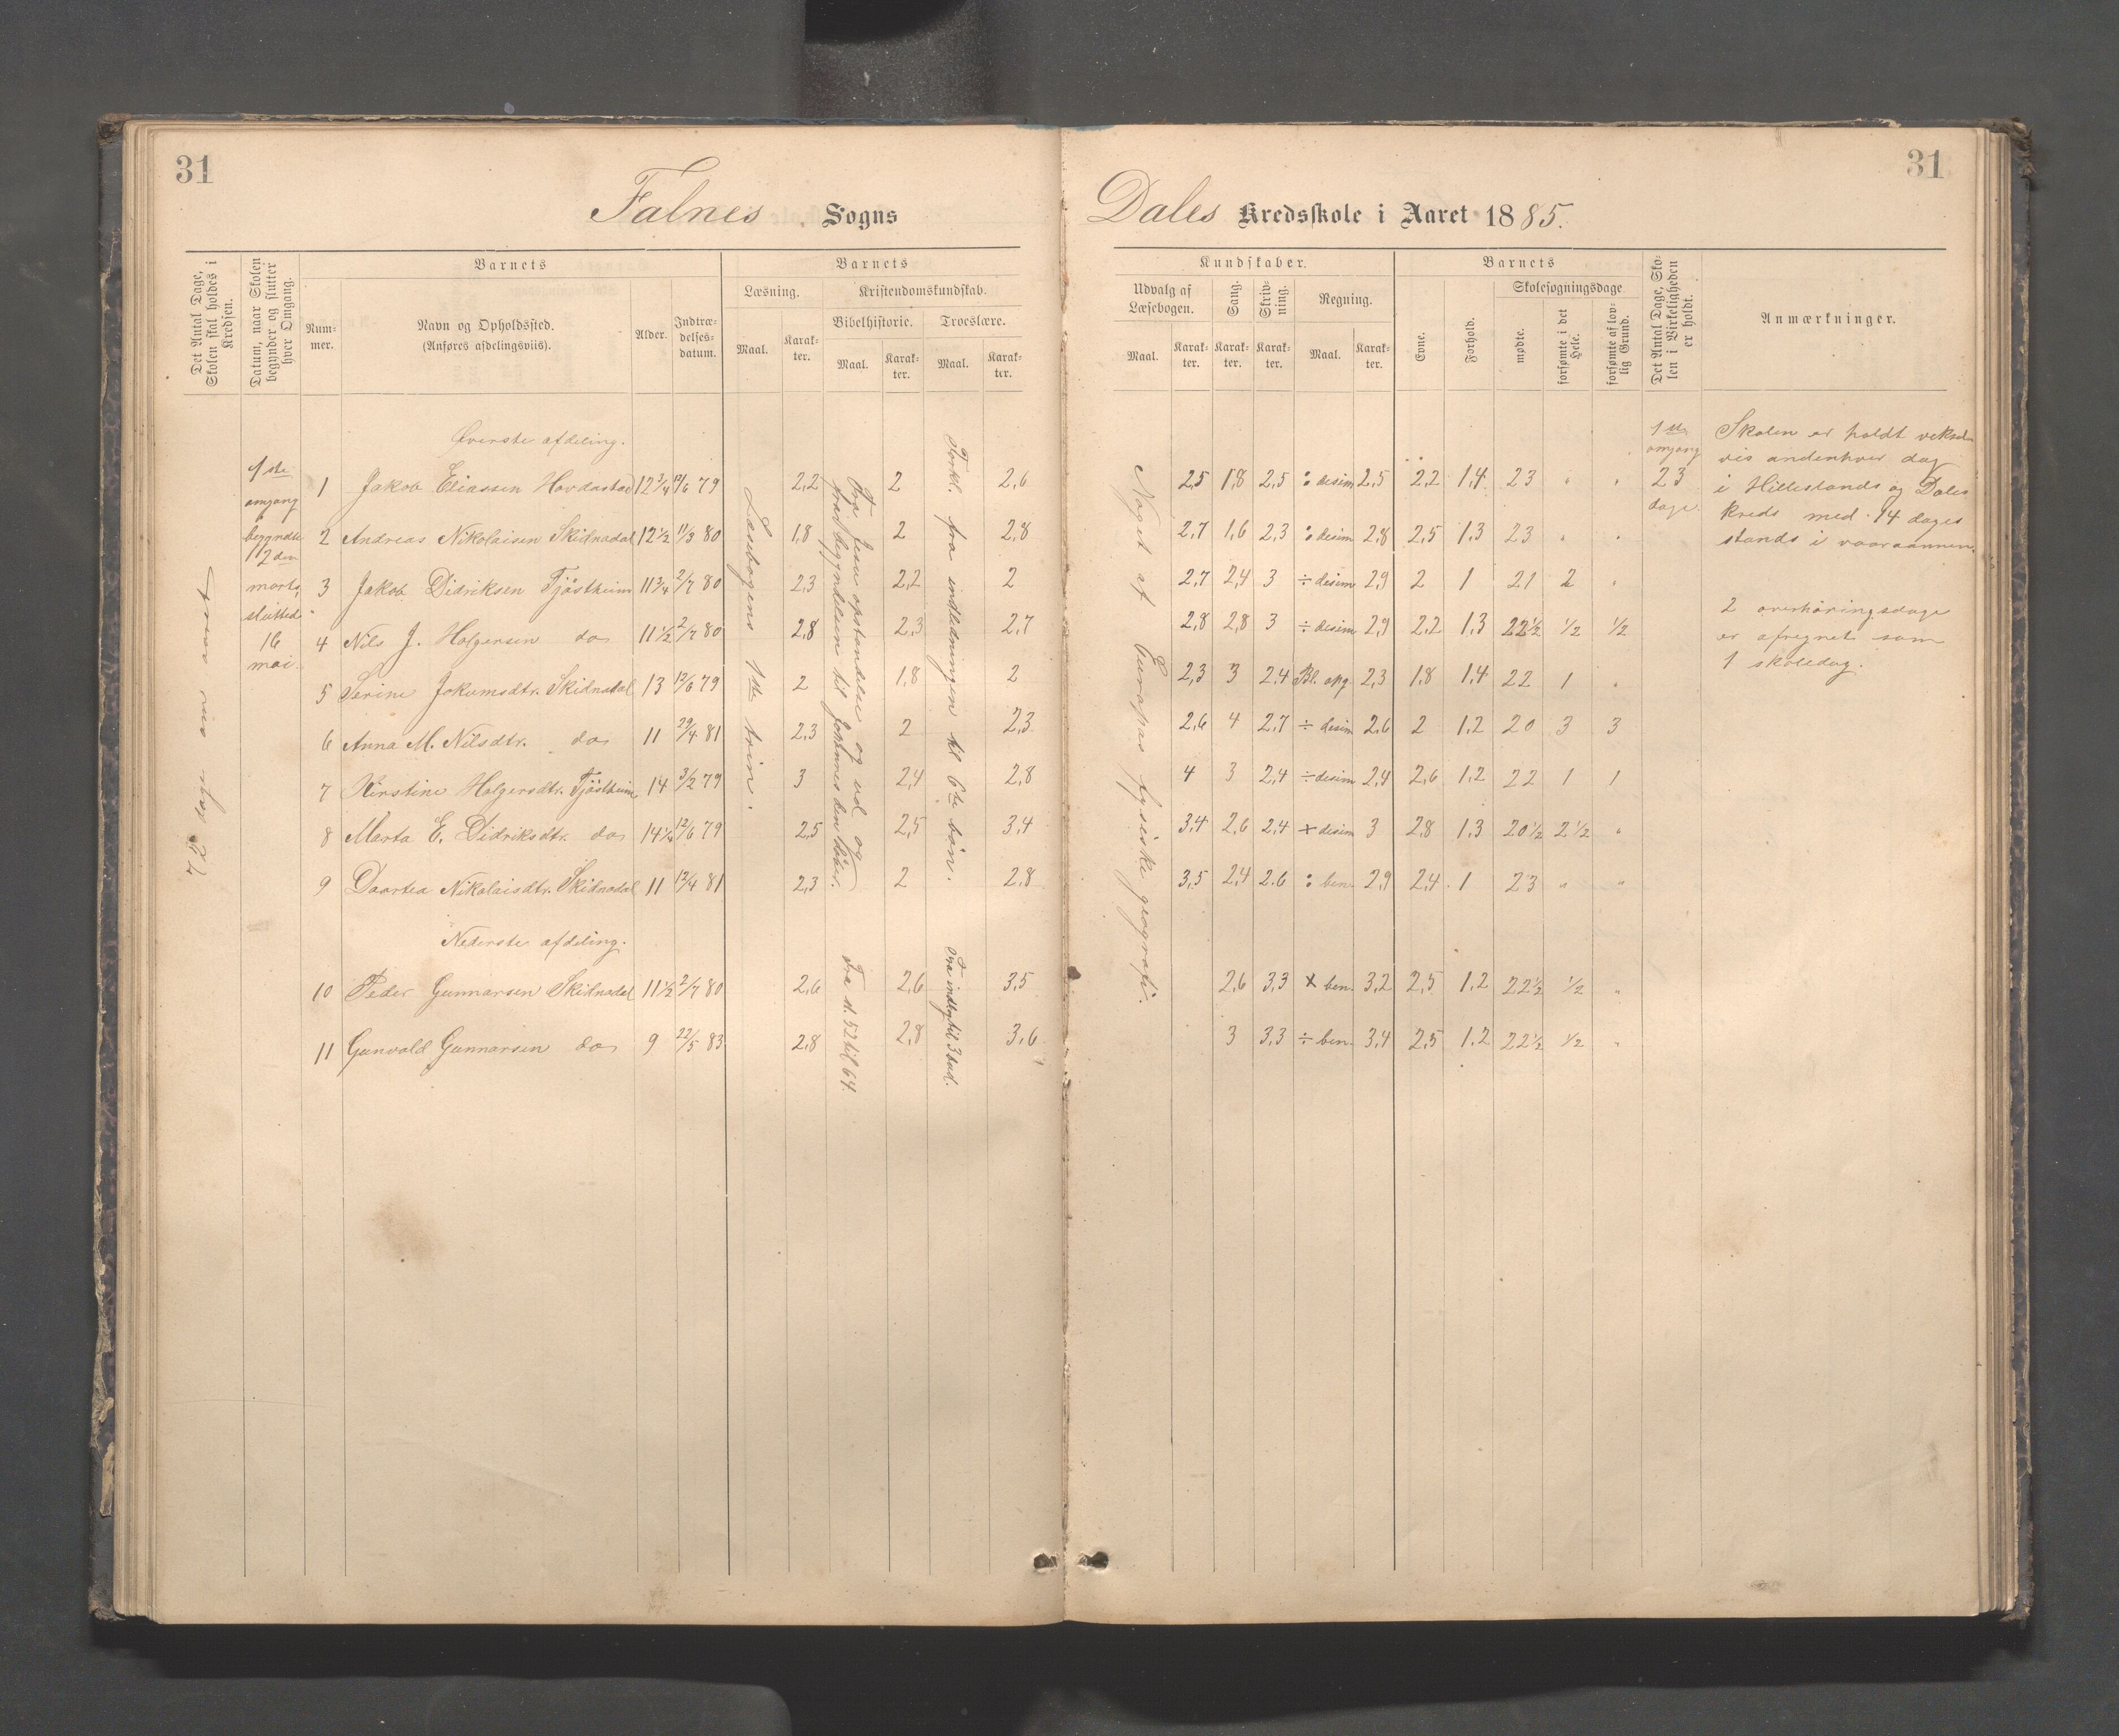 31
31
Falnes Sogns
Dales Kredsskole i Aaret 1885.
Det Antal Dage, Skolen skal holdes i Kredsen.
Datum, naar Skolen begynder og slutter hver Omgang.
Barnets
Nummer.
Navn og Opholdssted.
(Anføres afdelingsviis).
Alder.
Indtrædelses-datum.
Barnets
Læsning.
Maal.
Karakter.
Kristendomskundskab.
Bibelhistorie.
Maal.
Karakter.
Troeslære.
Maal.
Karakter.
Kundskaber.
Udvalg af Læsebogen.
Maal.
Karakter.
Sang.
Karakter.
Skrivning.
Karakter.
Regning.
Maal.
Karakter.
Barnets
Evne.
Forhold.
Skolesøgningsdage
mødte.
forsømte i det Hele.
forsømte af lovlig Grund.
Det Antal Dage, Skolen i Virkeligheden er holdt.
Anmærkninger.
1ste
omgang
begyndte
12den
marts,
sluttede
16
mai.
Øverste afdeling.
1 Jakob Eliassen Hovdastad 12 3/4 12/6 79 2,2 2 2,6 2,5 1,8 2,5 : desim 2,5 2,2 1,4 23 " "
2 Andreas Nikolaisen Skidnadal 12 1/2 11/3 80 1,8 2 2,8 2,7 1,6 2,3 : desim 2,8 2,5 1,3 23 " "
3 Jakob Didriksen Tjøstheim 11 3/4 2/7 80 2,3 2,2 2 2,7 2,4 3 ÷ desim 2,9 2 1 21 2 "
4 Nils J. Holgersen do 11 1/2 2/7 80 2,8 2,3 2,7 2,8 2,8 3 ÷ desim 2,9 2,2 1,3 22 1/2 1/2 1/2
5 Serine Jokumsdtr. Skidnadal 13 12/6 79 2 1,8 2 2,3 3 2,4 Bl. opg. 2,3 1,8 1,4 22 1 "
6 Anna M. Nilsdtr. do 11 29/4 81 2,3 2 2,3 2,6 4 2,7 ÷ desim 2,6 2 1,2 20 3 3
7 Kirstine Holgersdtr. Tjøstheim 14 3/2 79 3 2,4 2,8 4 3 2,4 ÷ desim 2,4 2,6 1,2 22 1 1
8 Marta E. Didriksdtr. do 14 1/4 12/6 79 2,5 2,5 3,4 3,4 2,6 2,4 × desim 3 2,8 1,3 20 1/2 2 1/2 "
9 Daartea Nikolaisdtr. Skidnadal 11 12/4 81 2,3 2 2,8 3,5 2,4 2,6 : ben. 2,9 2,4 1 23 " "
Nederste afdeling.
10 Peder Gunnarsen Skidnadal 11 1/2 2/7 80 2,6 2,6 3,5 2,6 3,3 × ben. 3,2 2,5 1,2 22 1/2 1/2 "
11 Gunvald Gunnarsen do 9 22/5 83 2,8 2,8 3,6 3 3,3 ÷ ben. 3,4 2,5 1,2 22 1/2 1/2 "
Læsebogens 1ste trin.
Fra Jesu opstandelse og ud og
fra begyndelsen til Johannes den døber.
Forkl. fra indledningen til 6te bøn.
Fra st. 52 til 64.
Fra indl. til 3 bud.
Noget af Europas fysiske geografi.
1ste
omgang
23
dage.
Skolen er holdt veksel-
vis andenhver dag
i Hillestands og Dales
kreds med 14 dages
stands i vaaraannen.
2 overhøringsdage
er afregnet som
1 skoledag.